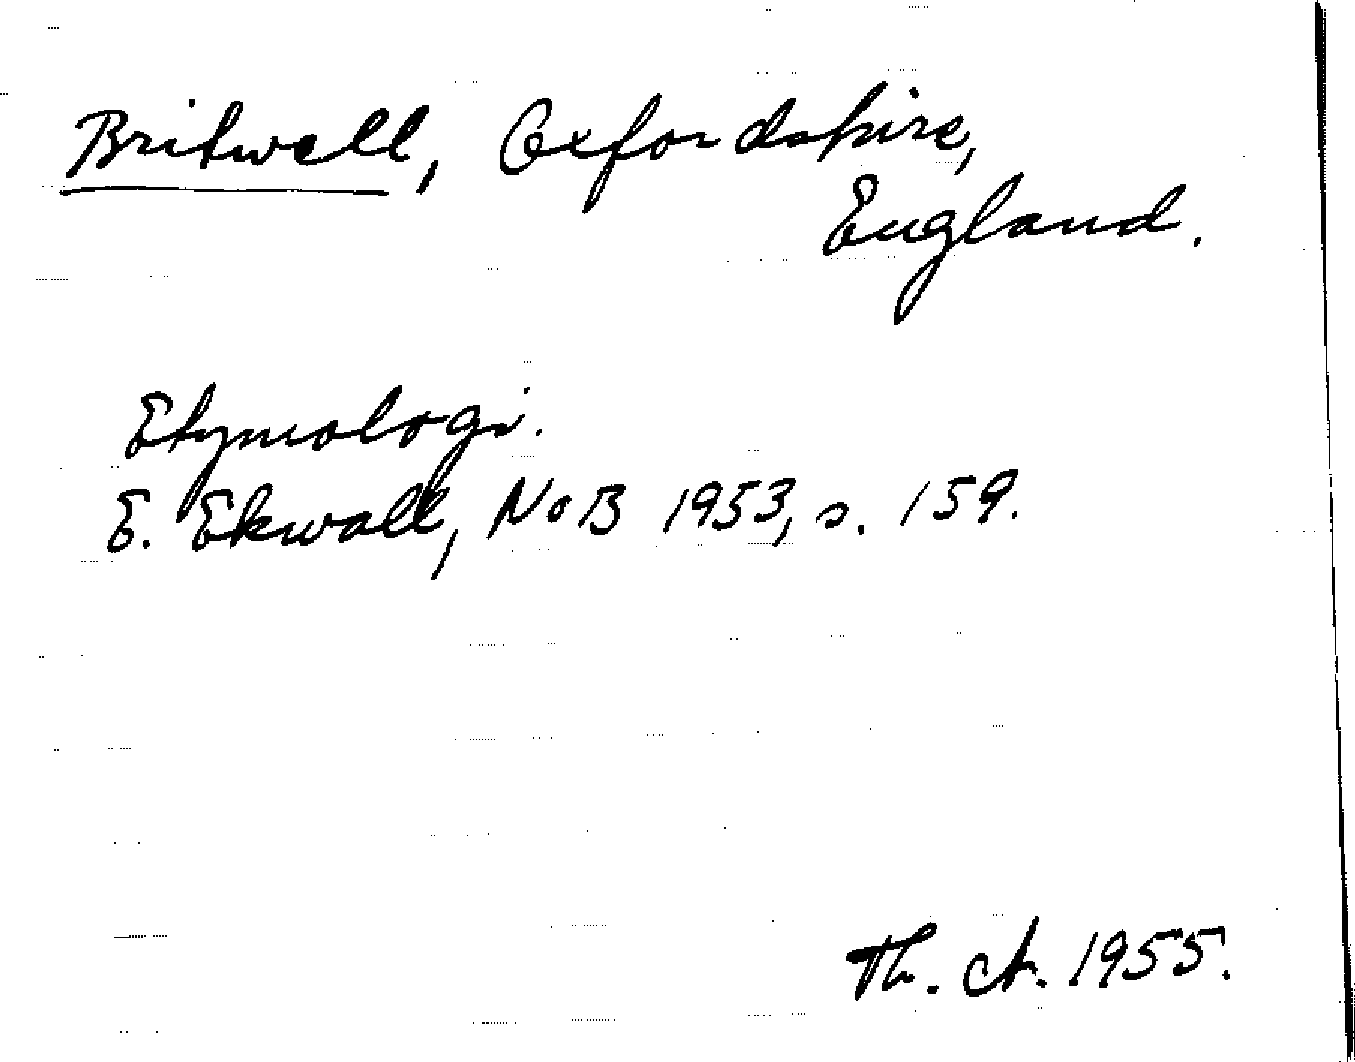 Britwell, Oxfordshire,
England.
Etymologi.
E. Ekwall, NoB 1953, s. 159.
Th. A. 1955.